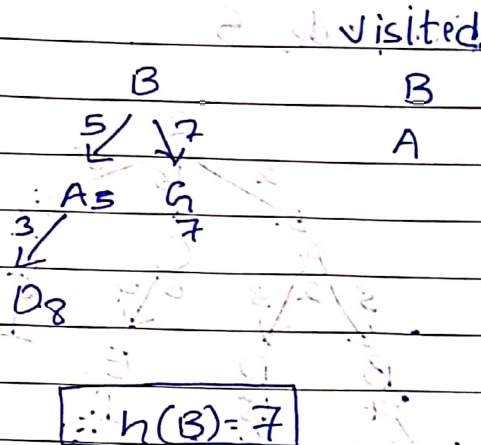 visited
B B
5 7 A
: A5 G
3 7
D8
∴ h(B) = 7